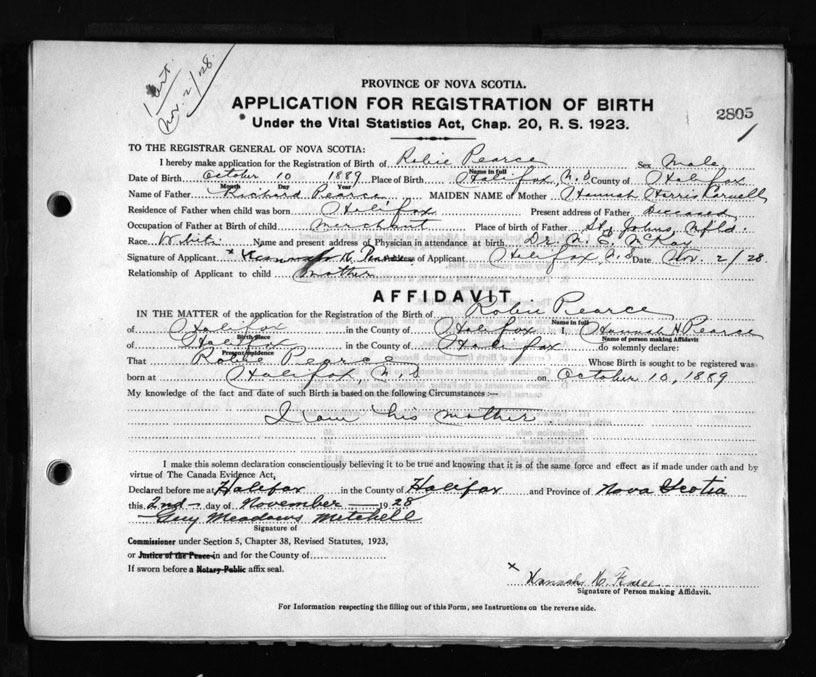 1 cert.
Nov. 2/28.
PROVINCE OF NOVA SCOTIA.
APPLICATION FOR REGISTRATION OF BIRTH
2805
1
Under the Vital Statistics Act, Chap. 20, R. S. 1923.
TO THE REGISTRAR GENERAL OF NOVA SCOTIA:
I hereby make application for the Registration of Birth of Robie Pearce Sex Male
Name in full
Date of Birth October 10 1889 Place of Birth Halifax, N.S County of Halifax
Month Day Year
Name of Father Richard Pearce MAIDEN NAME of Mother Hannah Harris
Residence of Father when child was born Halifax Present address of Father Deceased
Occupation of Father at Birth of child Merchant Place of birth of Father St. Johns Nfld.
Race White Name and present address of Physician in attendance at birth Dr. N. E. McKay
Signature of Applicant x Hannah H. of Applicant Halifax N.S Date Nov. 2/28
Relationship of Applicant to child Mother
AFFIDAVIT
IN THE MATTER of the application for the Registration of the Birth of Robie Pearce
Name in full
of Halifax in the County of Halifax I, Hannah H. Pearce
Birth-place Name of person making Affidavit
of Halifax in the County of Halifax do solemnly declare:
Present residence
That Robie Pearce Whose Birth is sought to be registered was
born at Halifax, N.S on October 10, 1889
My knowledge of the fact and date of such Birth is based on the following Circumstances :—
I am his mother.
I make this solemn declaration conscientiously believing it to be true and knowing that it is of the same force and effect as if made under oath and by
virtue of The Canada Evidence Act,
Declared before me at Halifax in the County of Halifax and Province of Nova Scotia
this 2nd day of November 1928
Guy Meadows Mitchell
Signature of
Commissioner under Section 5, Chapter 38, Revised Statutes, 1923,
or Justice of the Peace in and for the County of
If sworn before a Notary Public affix seal.
x Hannah H.
Signature of Person making Affidavit.
For Information respecting the filling out of this Form, see Instructions on the reverse side.